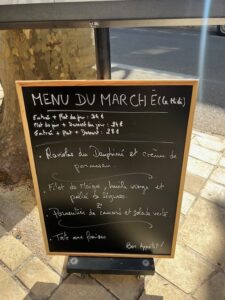 MENU DU MARCHÉ (le Midi)
Entrée + Plat du jour : 24 €
Plat du jour + Dessert du jour : 24 €
Entrée + Plat + Dessert : 28 €
• Ravioles du Dauphiné et crème de
parmesan
• Filet de Maigre, huile vierge et
poêlée de légumes
• Parmentier de canard et salade verte
• Tarte aux fraises
Bon Appétit !